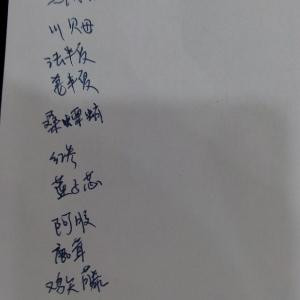 川贝母
法半夏
姜半夏
桑螵蛸
红参
莲子芯
阿胶
鹿茸
鸡矢藤